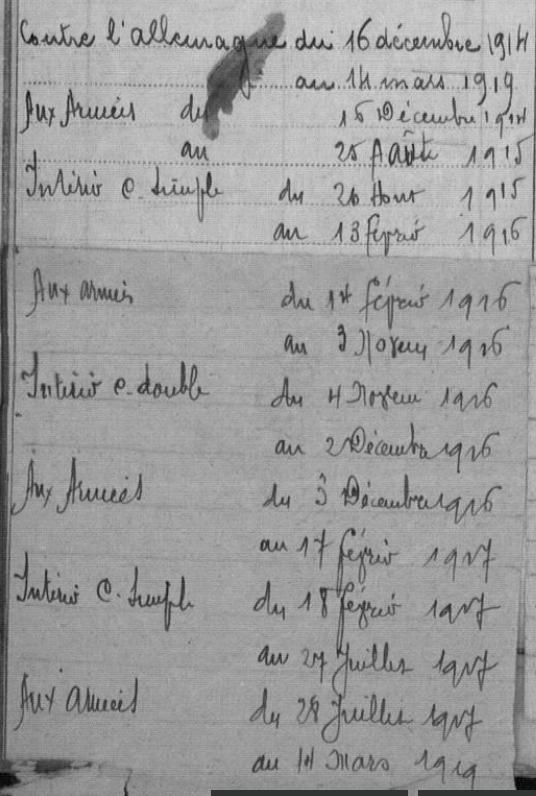 Contre l'allemagne du 16 décembre 1914
au 14 mars 1919
Aux Armées du 16 Décembre 1914
au 25 Août 1915
Intérié C. Simple du 26 Aout 1915
au 13 févrié 1916
Aux armées du 14 févrié 1916
au 3 Novem 1916
Intérié C. double du 4 Novem 1916
au 2 Décembre 1916
Aux Armées du 3 Décembre 1916
au 17 févrié 1917
Intérié C. Simple du 18 févrié 1917
au 27 Juillet 1917
Aux armées du 28 Juillet 1917
au 14 Mars 1919